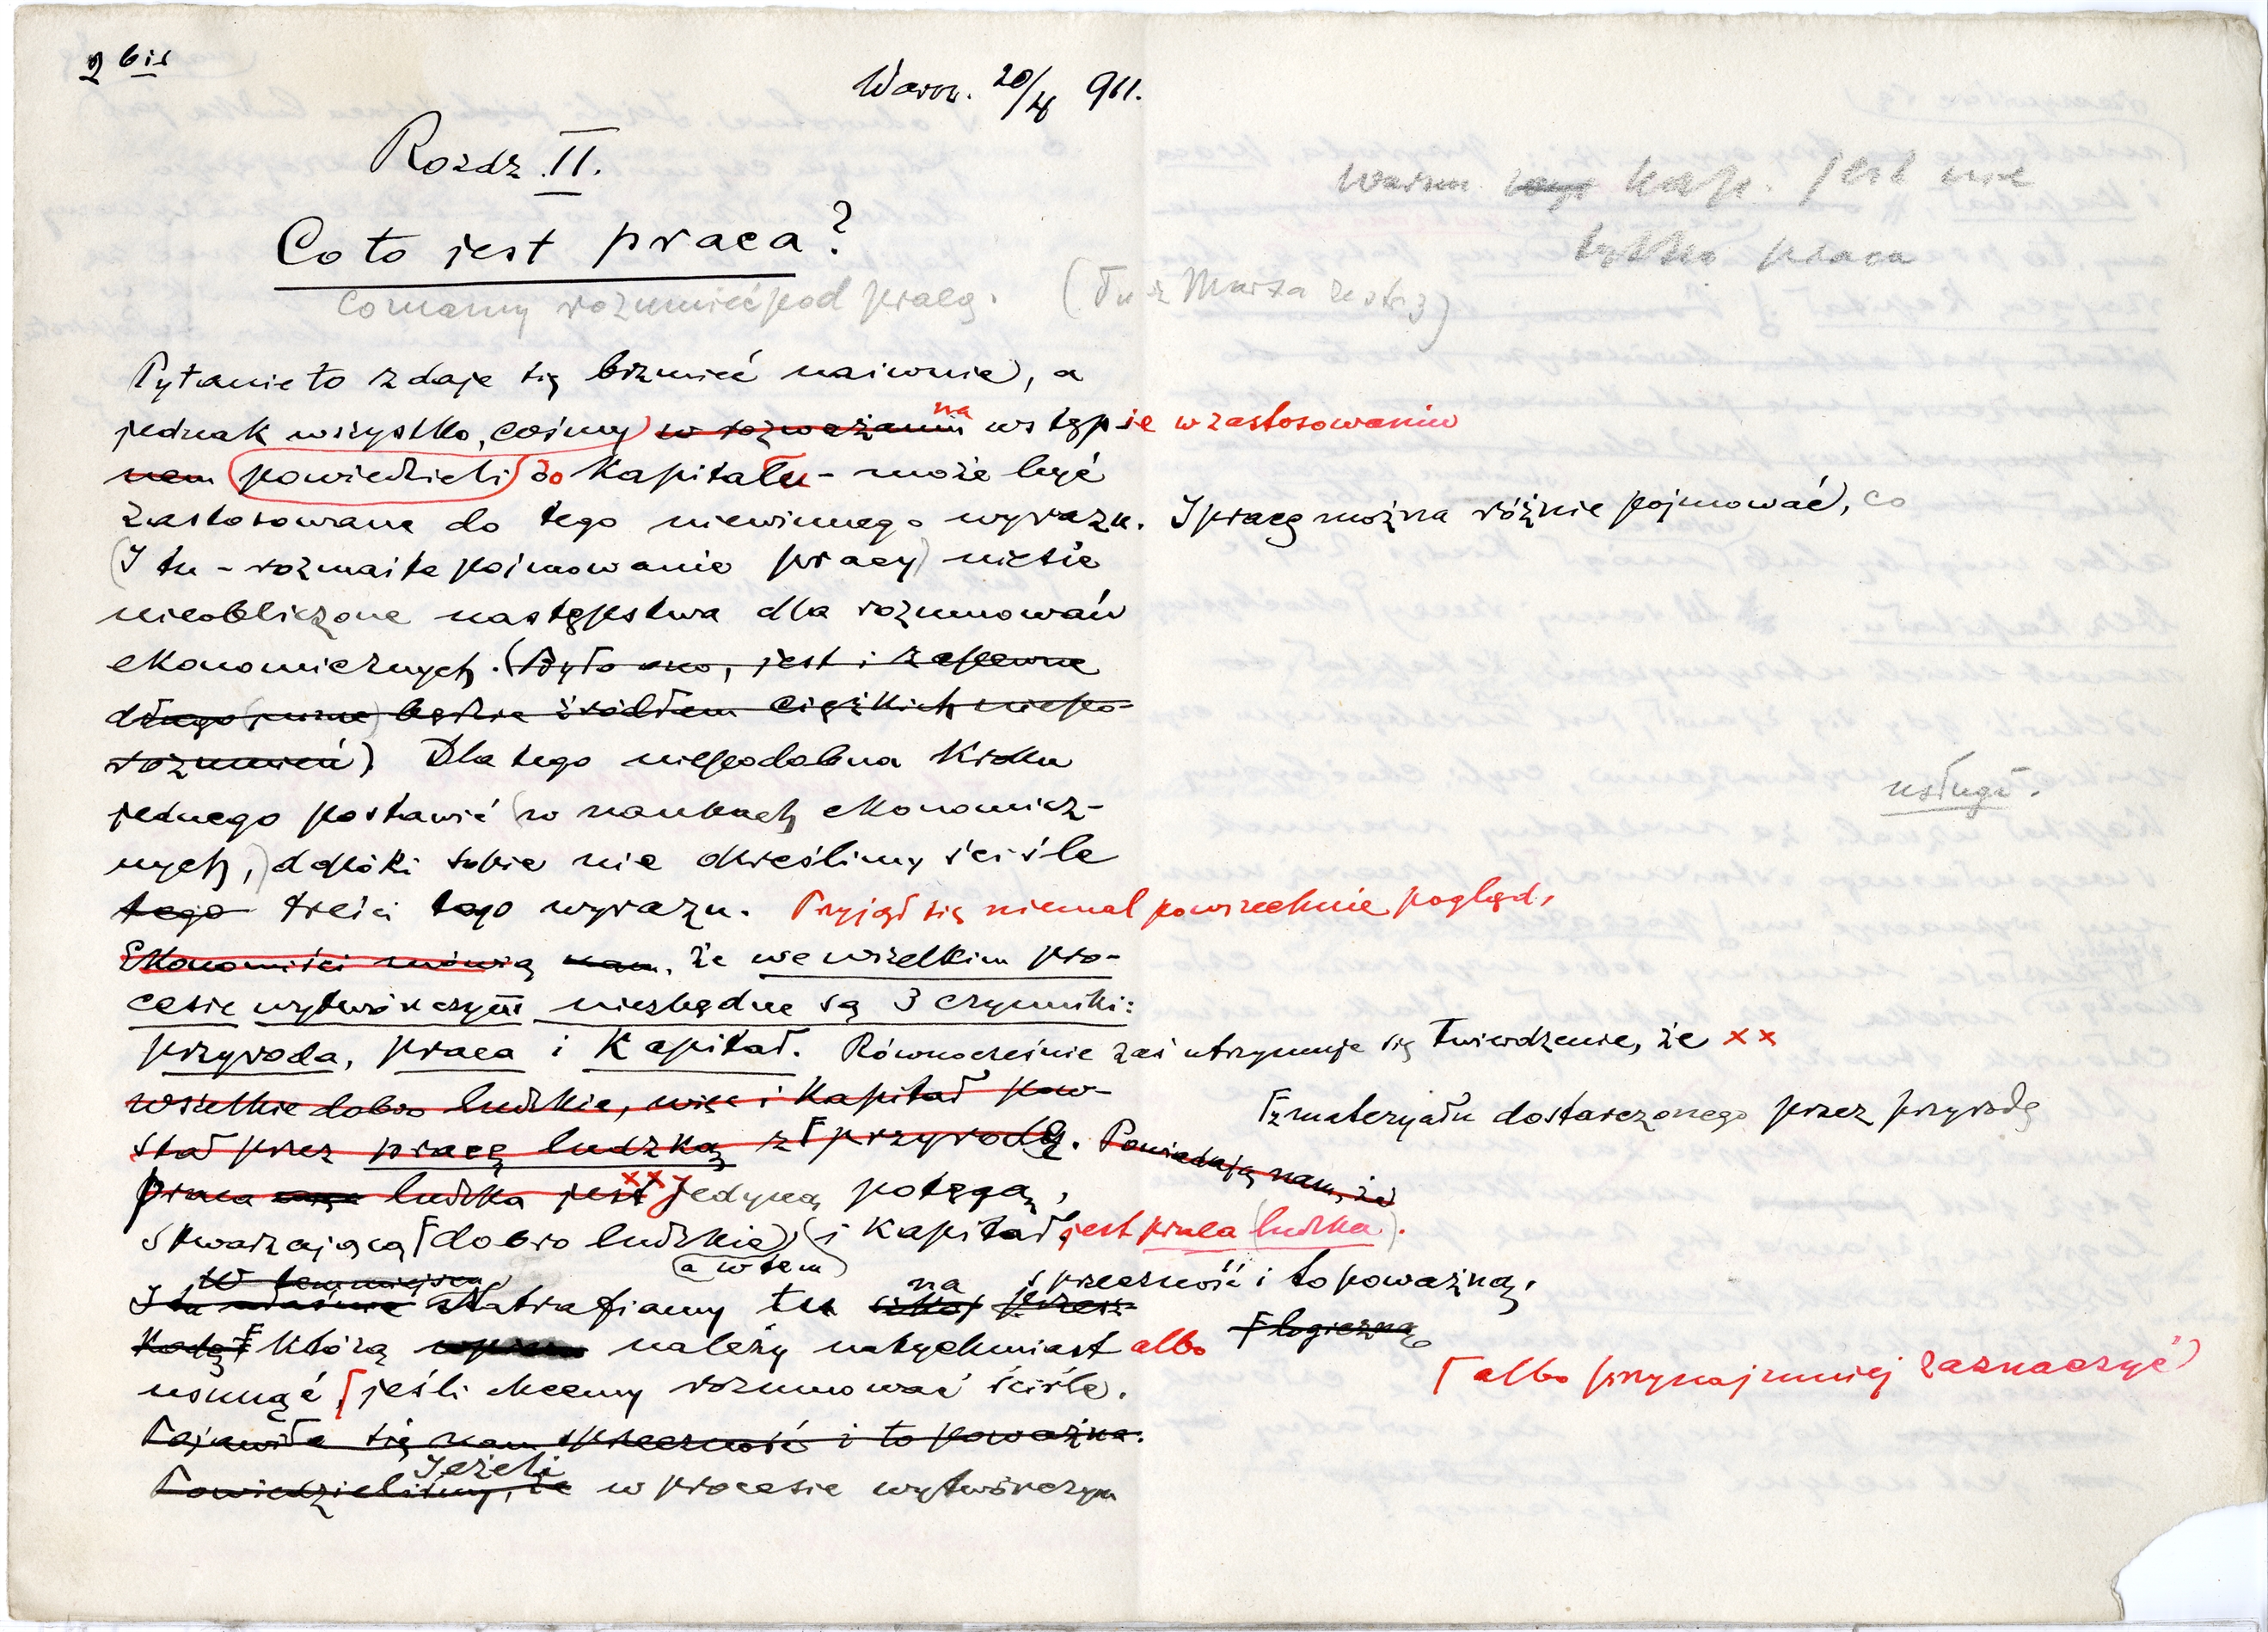 2 bis
Warsz. 20/X 911.
Rozdz. II.
Co to jest praca?
Co mamy rozumieć pod pracą.
(Tu z Marxa ze str 3)
warun. kap. jest nie
tylko praca
Pytanie to zdaje się brzmieć naiwnie, a
jednak wszystko, cośmy w rozważaniu na wstępie w zastosowaniu
powiedzieli do Kapitału - może być
zastosowane do tego niewinnego wyrazu. I pracę można różnie pojmować, co
(I tu - rozmaite pojmowanie pracy) niesie
nieobliczone następstwa dla rozumowań
ekonomicznych. (Było ono, jest i zapewne
długo będzie źródłem ciężkich niepo-
rozumień). Dlatego niepodobna kroku
jednego postawić (w naukach ekonomicz-
nych,) dopóki sobie nie określimy ściśle
usługi.
tego treści tego wyrazu. Przyjął się niemal powszechnie pogląd,
Ekonomiści mówią nam, że we wszelkim pro-
cesie wytwórczym niezbędne są 3 czynniki:
przyroda, praca i Kapitał. Równocześnie zaś utrzymuje się twierdzenie, że xx
wszelkie dobro ludzkie, więc i Kapitał pow-
stał przez pracę ludzką z Γ przyrodą. Powiadają nam, że
Γ z materyału dostarczonego przez przyrodę
praca ludzka jest xx jedyną potęgą,
stwarzającą Γ dobro ludzkie, (i Kapitał, jest praca (ludzka).
(a w tem)
W tem miejscu
I tu właśnie natrafiamy tu na sprzeczność i to poważną,
którą należy natychmiast albo
Γ logiczną
usunąć Γ jeśli chcemy rozumować ściśle.
Γ albo przynajmniej zaznaczyć
Pojawiła się nam sprzeczność i to poważna.
Jeżeli
Powiedzieliśmy, że w procesie wytwórczym